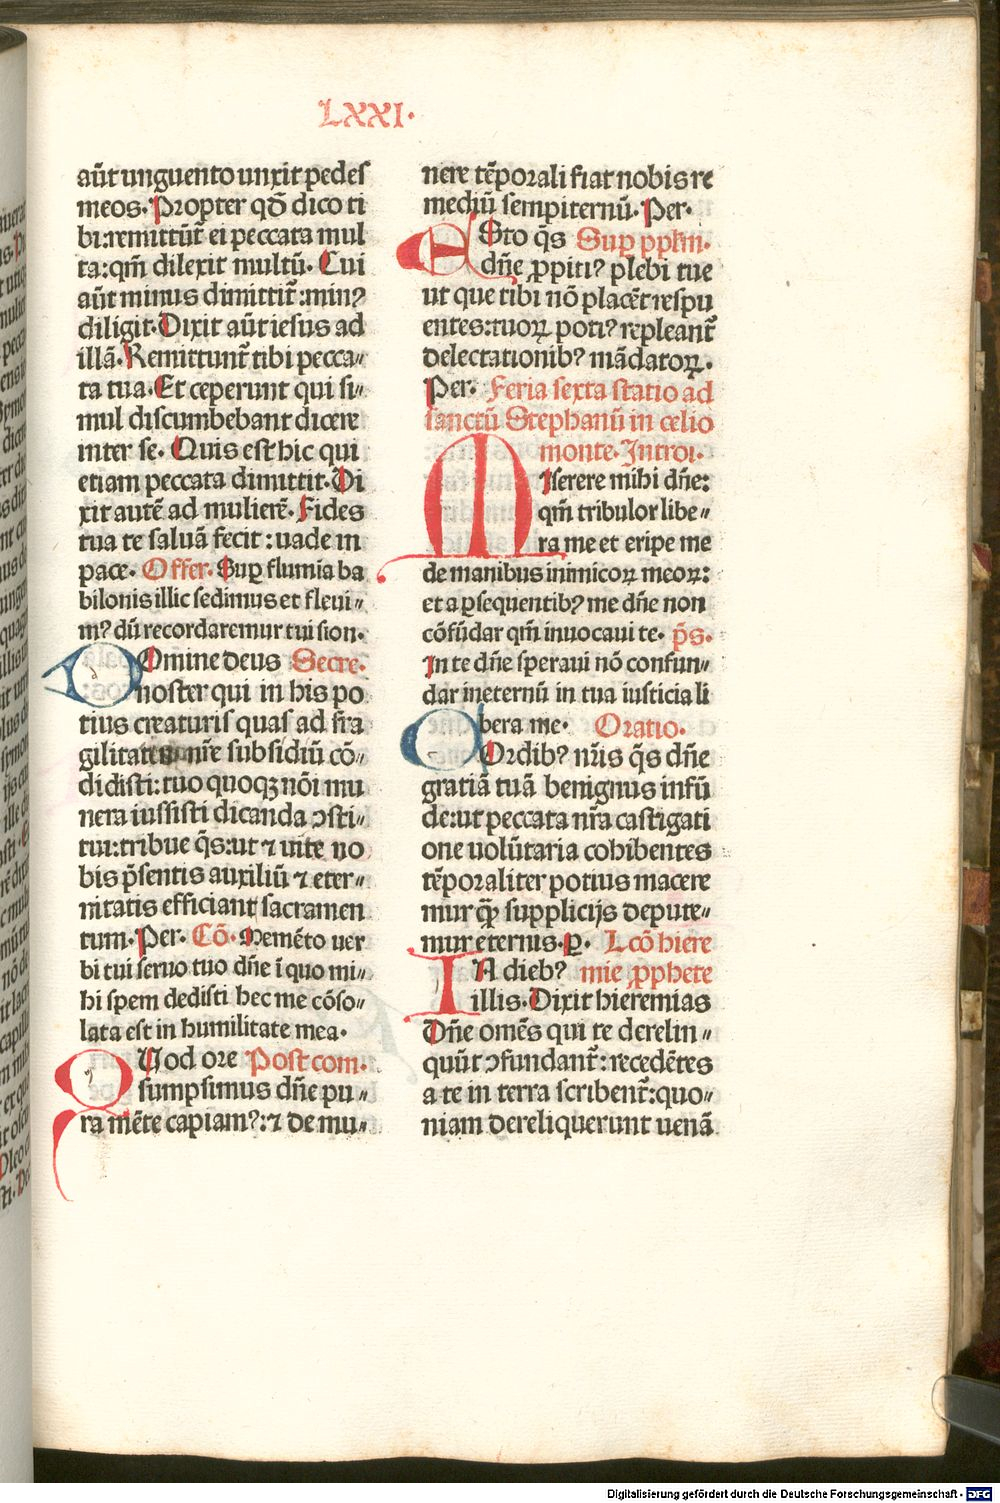 LXXI.
aūt unguento unxit pedes
meos. Propter qđ dico ti
bi:remittūt̄ ei peccata mul
ta:qm̄ dilexit multū. Cui
aūt minus dimittit̄:minꝰ
diligit. Dixit aūt iesus ad
illā. Remittunt̄ tibi pecca〃
ta tua. Et ceperunt qui si〃
mul discumbebant dicere
inter se. Quis est hic qui
etiam peccata dimittit. Di
xit autē ad mulierē. Fides
tua te saluā fecit: uade in
pace. Offer. Suꝑ flumia ba
bilonis illic sedimus et fleui〃
mꝰ dū recordaremur tui sion.
Domine deus Secre.
noster qui in his po
tius creaturis quas ad fra
gilitatis nr̄e subsidiū cō〃
didisti: tuo quoqꝫ nōi mu
nera iussisti dicanda ↄsti〃
tui:tribue q̄s:ut ⁊ uite no
bis p̄sentis auxiliū ⁊ eter〃
nitatis efficiant sacramen
tum. Per. Cō. Memēto uer
bi tui seruo tuo dn̄e ī quo mi〃
hi spem dedisti hec me cōso〃
lata est in humilitate mea.
Quod ore Post com.
sumpsimus dn̄e pu〃
ra mēte capiamꝰ:⁊ de mu〃
nere tēporali fiat nobis re
mediū sempiternū. Per.
ESto q̄s Suꝑ pplm̄.
dn̄e ꝓpitiꝰ plebi tue
ut que tibi nō placēt respu
entes:tuoꝝ potiꝰ repleant̄
delectationibꝰ mādatoꝝ.
Per. Feria sexta statio ad
sanctū Stephanū in celio
monte. Introi.
MIserere mihi dn̄e:
qm̄ tribulor libe〃
ra me et eripe me
de manibus inimicoꝝ meoꝝ:
et a ꝑsequentibꝰ me dn̄e non
cōfūdar qm̄ inuocaui te. p̄s.
In te dn̄e speraui nō confun〃
dar in eternū in tua iusticia li
bera me. Oratio.
COrdibꝰ nr̄is q̄s dn̄e
gratiā tuā benignus infū
de:ut peccata nr̄a castigati
one uolūtaria cohibentes
tēporaliter potius macere
mur qꝫ̄ supplicijs depute〃
mur eternis. ꝑ. Lcō hiere
IN diebꝰ mie ꝓphete
illis. Dixit hieremias
Dn̄e omēs qui te derelin〃
quūt ↄfundant̄: recedētes
a te in terra scribent̄:quo〃
niam dereliquerunt uenā
Digitalisierung gefördert durch die Deutsche Forschungsgemeinschaft - DFG